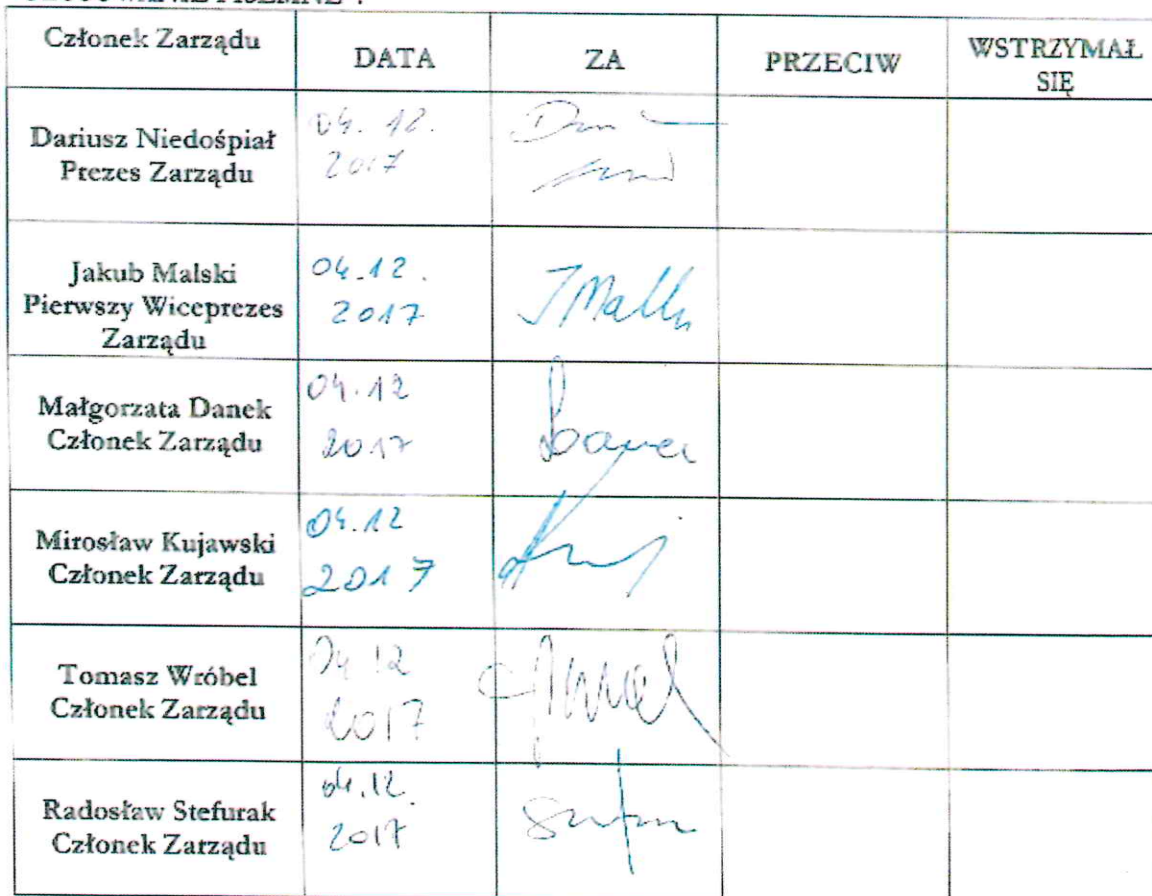 Członek Zarządu
DATA
ZA
PRZECIW
WSTRZYMAŁ
SIĘ
Dariusz Niedośpiał
Prezes Zarządu
04. 12.
2017
Jakub Malski
Pierwszy Wiceprezes
Zarządu
04.12.
2017
JMalh
Małgorzata Danek
Członek Zarządu
04.12
2017
Danek
Mirosław Kujawski
Członek Zarządu
04.12
2017
Tomasz Wróbel
Członek Zarządu
04 12
2017
Radosław Stefurak
Członek Zarządu
04.12.
2017